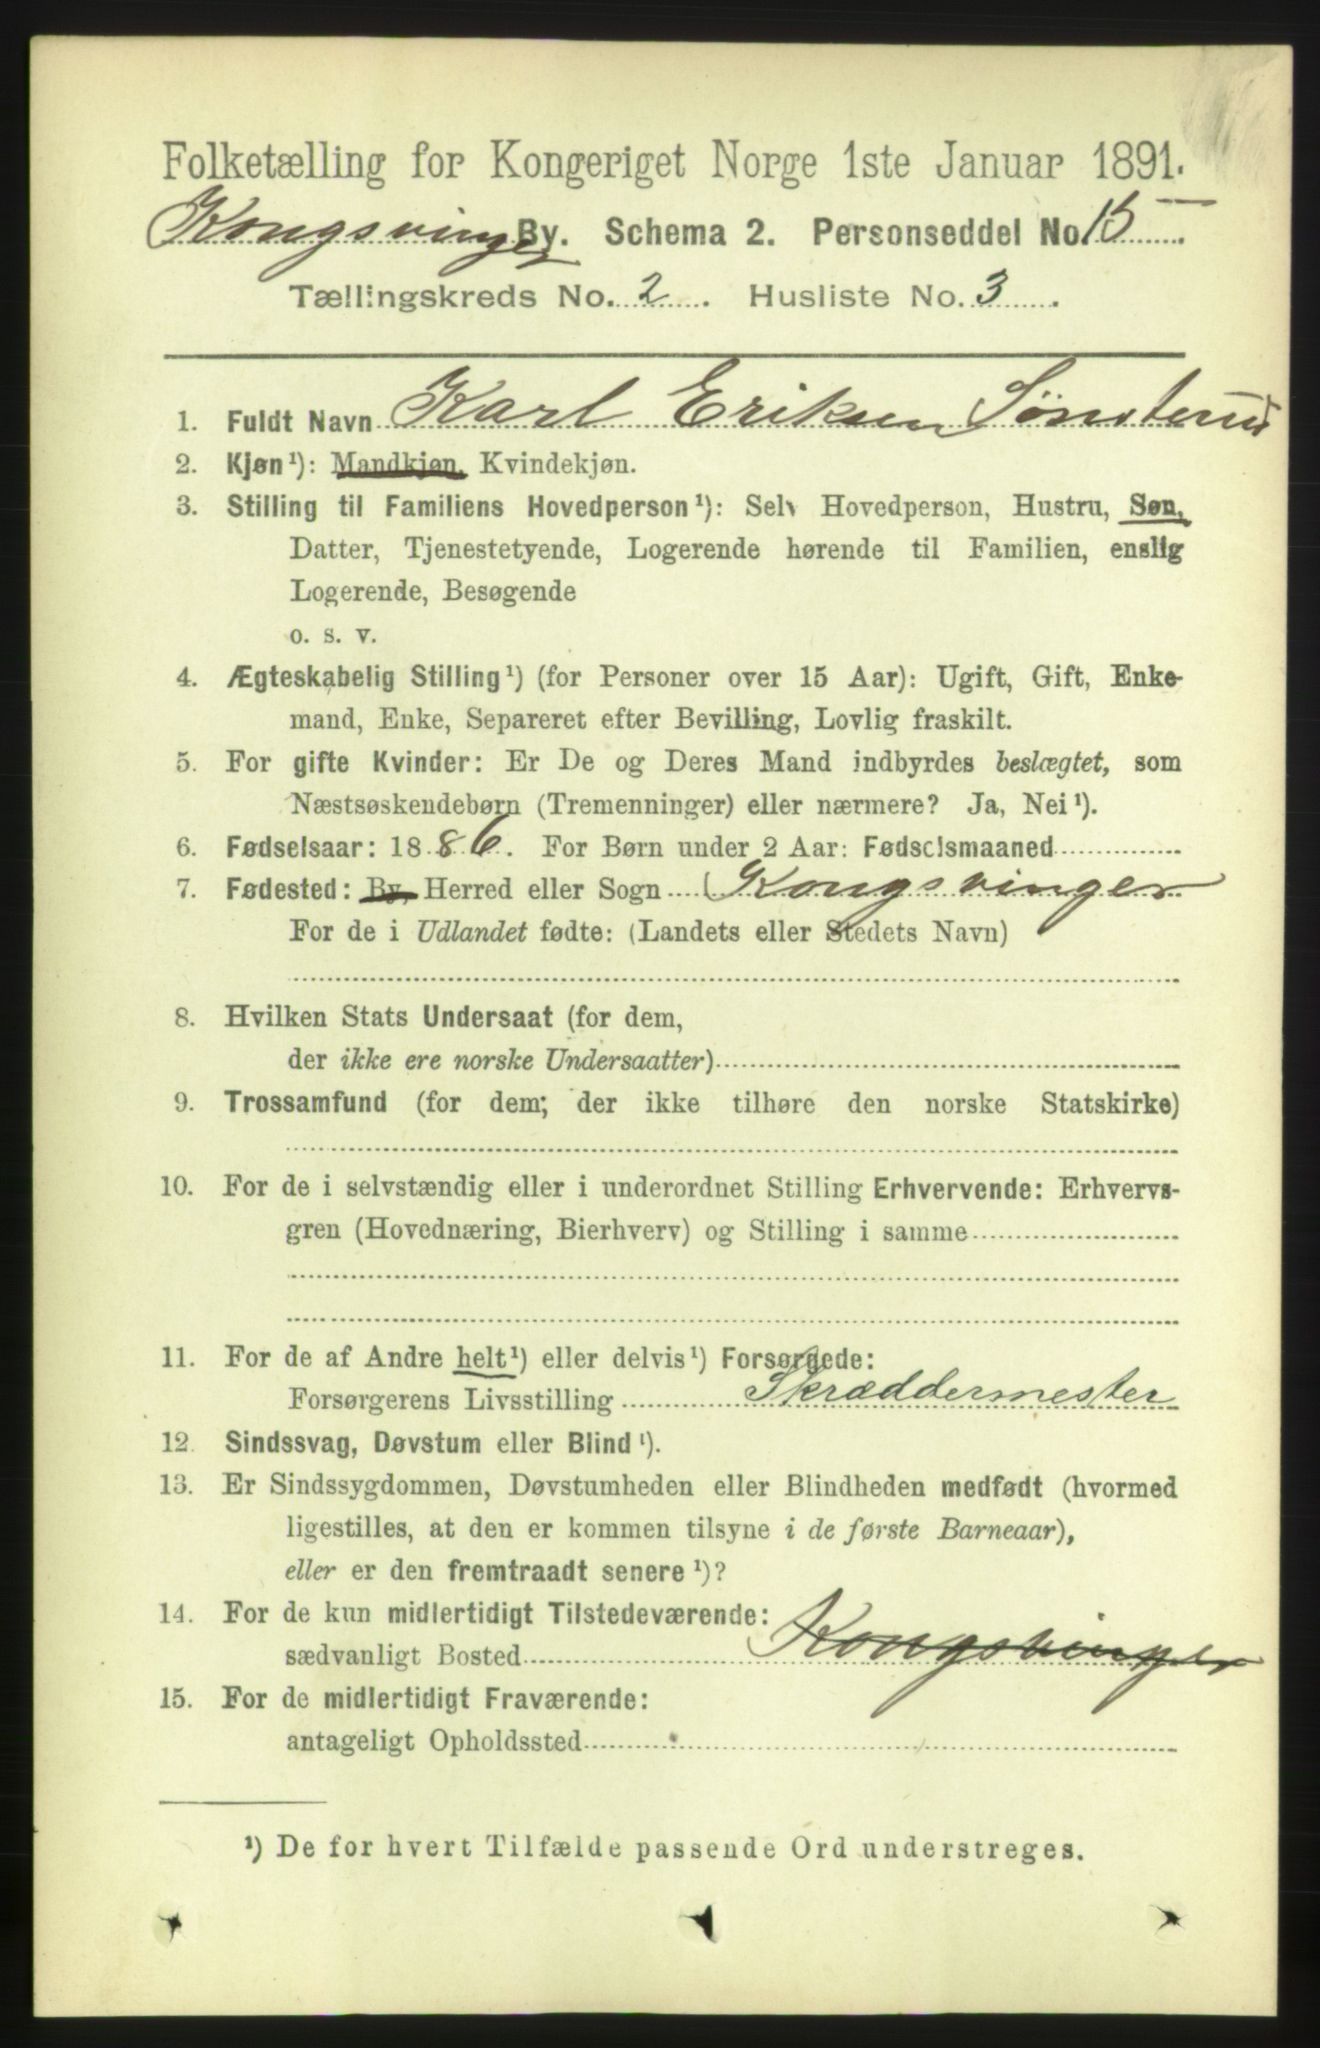 Folketælling for Kongeriget Norge 1ste Januar 1891.
Kongsvinger By. Schema 2. Personseddel No. 15
Tællingskreds No. 2. Husliste No. 3.
1. Fuldt Navn Karl Eriksen Sønsterud
2. Kjøn¹): Mandkjøn, Kvindekjøn.
3. Stilling til Familiens Hovedperson¹): Selv Hovedperson, Hustru, Søn,
Datter, Tjenestetyende, Logerende hørende til Familien, enslig
Logerende, Besøgende
o. s. v.
4. Ægteskabelig Stilling¹) (for Personer over 15 Aar): Ugift, Gift, Enke-
mand, Enke, Separeret efter Bevilling, Lovlig fraskilt.
5. For gifte Kvinder: Er De og Deres Mand indbyrdes beslægtet, som
Næstsøskendebørn (Tremenninger) eller nærmere? Ja, Nei¹).
6. Fødselsaar: 1886. For Børn under 2 Aar: Fødselsmaaned
7. Fødested: By, Herred eller Sogn Kongsvinger
For de i Udlandet fødte: (Landets eller Stedets Navn)
8. Hvilken Stats Undersaat (for dem,
der ikke ere norske Undersaatter)
9. Trossamfund (for dem; der ikke tilhøre den norske Statskirke)
10. For de i selvstændig eller i underordnet Stilling Erhvervende: Erhvervs-
gren (Hovednæring, Bierhverv) og Stilling i samme
11. For de af Andre helt¹) eller delvis¹) Forsørgede:
Forsørgerens Livsstilling Skræddermester
12. Sindssvag, Døvstum eller Blind¹).
13. Er Sindssygdommen, Døvstumheden eller Blindheden medfødt (hvormed
ligestilles, at den er kommen tilsyne i de første Barneaar),
eller er den fremtraadt senere¹)?
14. For de kun midlertidigt Tilstedeværende:
sædvanligt Bosted Kongsvinger
15. For de midlertidigt Fraværende:
antageligt Opholdssted
¹) De for hvert Tilfælde passende Ord understreges.